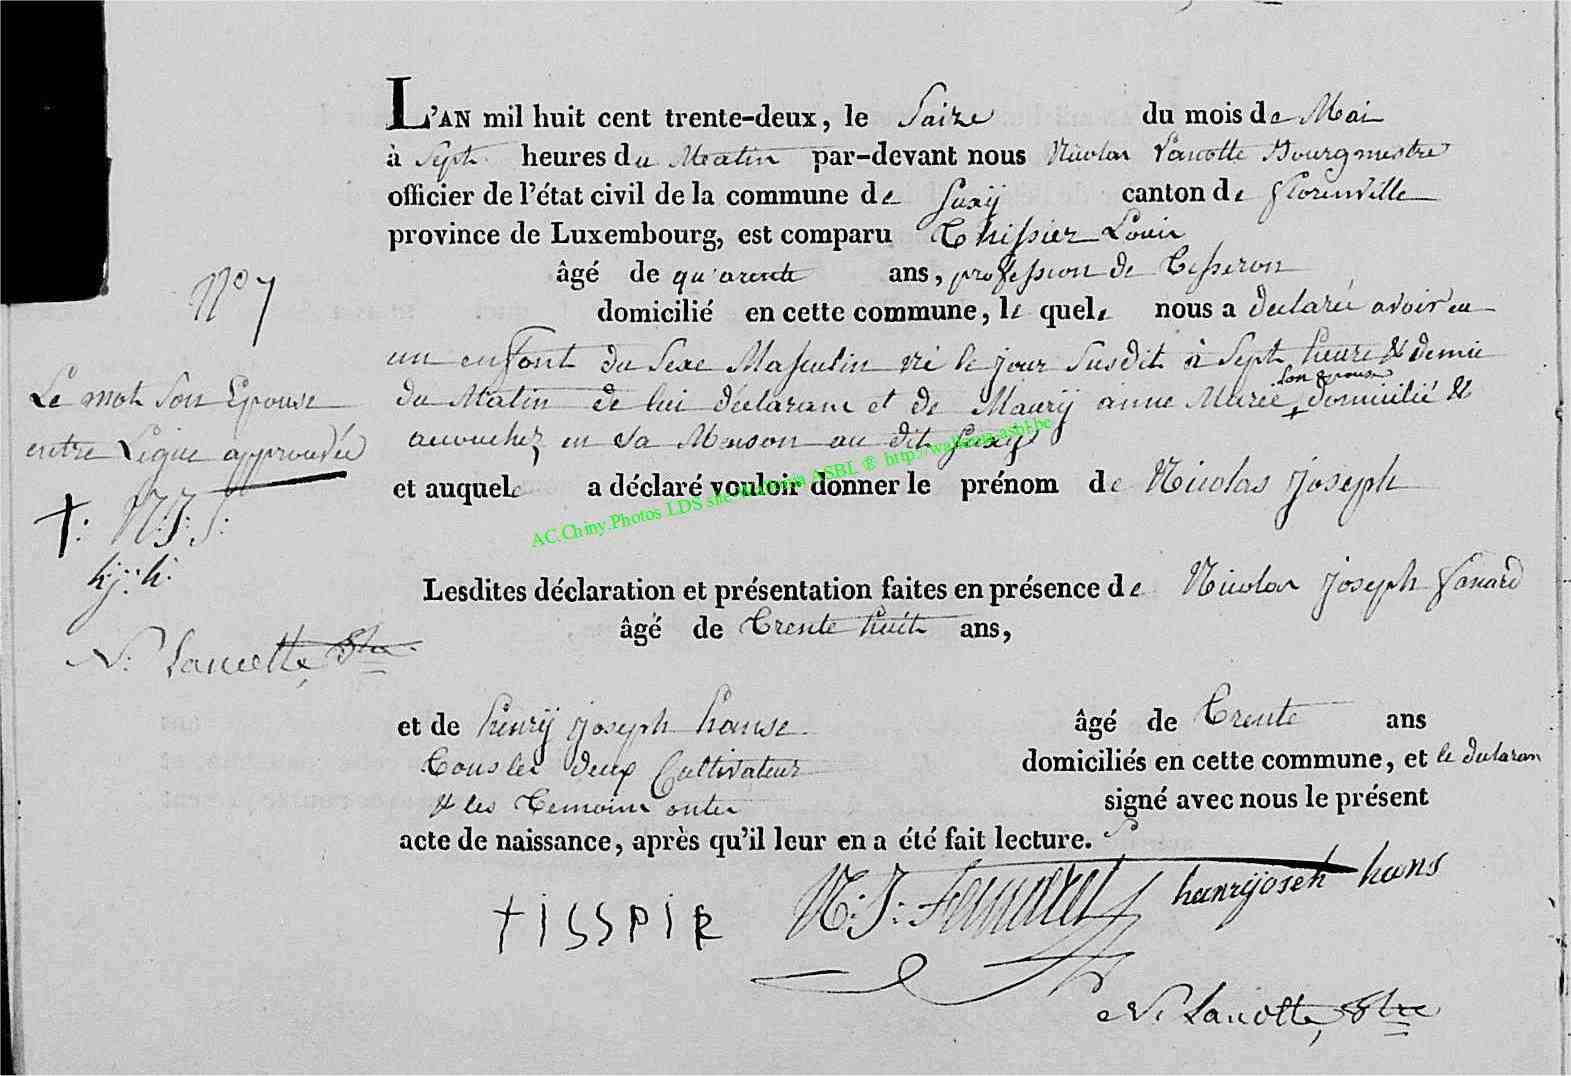 L'AN mil huit cent trente-deux, le Saize du mois de Mai
à Sept heures du Matin par-devant nous Nicolas Lancotte Bourgmestre
officier de l'état civil de la commune de Suxÿ canton de florenville
province de Luxembourg, est comparu Thissier Louis
âgé de qu'arente ans, profession de Tisseron
domicilié en cette commune, le quele nous a déclaré avoir eu
un enfant du Sexe Masculin né le jour Susdit à Sept heure & demie
du Matin de lui déclarant et de Maurÿ anne Marie son epouse domicilié &
accouchez en sa Maison au dit Suxÿ
et auquele a déclaré vouloir donner le prénom de Nicolas joseph
Lesdites déclaration et présentation faites en présence de Nicolas joseph
âgé de Trente huit ans,
et de henrÿ joseph hanse âgé de Trente ans
Tous les deux Cultivateur domiciliés en cette commune, et le declaran
& les Temoins ontes signé avec nous le présent
acte de naissance, après qu'il leur en a été fait lecture.
N° 7
Le mot Son Epouse
entre Ligne approuvée
†: N: J:
h: j: h:
N: Lancotte, Btre
AC.Chiny.Photos LDS site Wallonia ASBL ® http://wallonia-asbl.be
TISSPIR N: J: henrijoseh hans
N. Lancotte, Btre